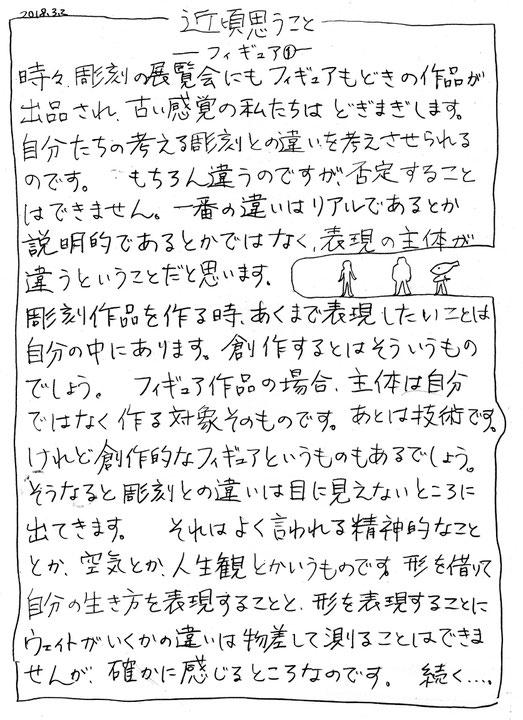 2018.3.2
近頃思うこと
―フィギュア①―
時々、彫刻の展覧会にもフィギュアもどきの作品が
出品され、古い感覚の私たちは どぎまぎします。
自分たちの考える彫刻との違いを考えさせられる
のです。 もちろん違うのですが、否定すること
はできません。一番の違いはリアルであるとか
説明的であるとかではなく、表現の主体が
違うということだと思います。
彫刻作品を作る時、あくまで表現したいことは
自分の中にあります。創作するとはそういうもの
でしょう。 フィギュア作品の場合、主体は自分
ではなく作る対象そのものです。あとは技術です。
けれど創作的なフィギュアというものもあるでしょう。
そうなると彫刻との違いは目に見えないところに
出てきます。 それはよく言われる精神的なこと
とか、空気とか、人生観とかいうものです。形を借りて
自分の生き方を表現することと、形を表現することに
ウェイトがいくかの違いは物差しで測ることはできま
せんが、確かに感じるところなのです。 続く….